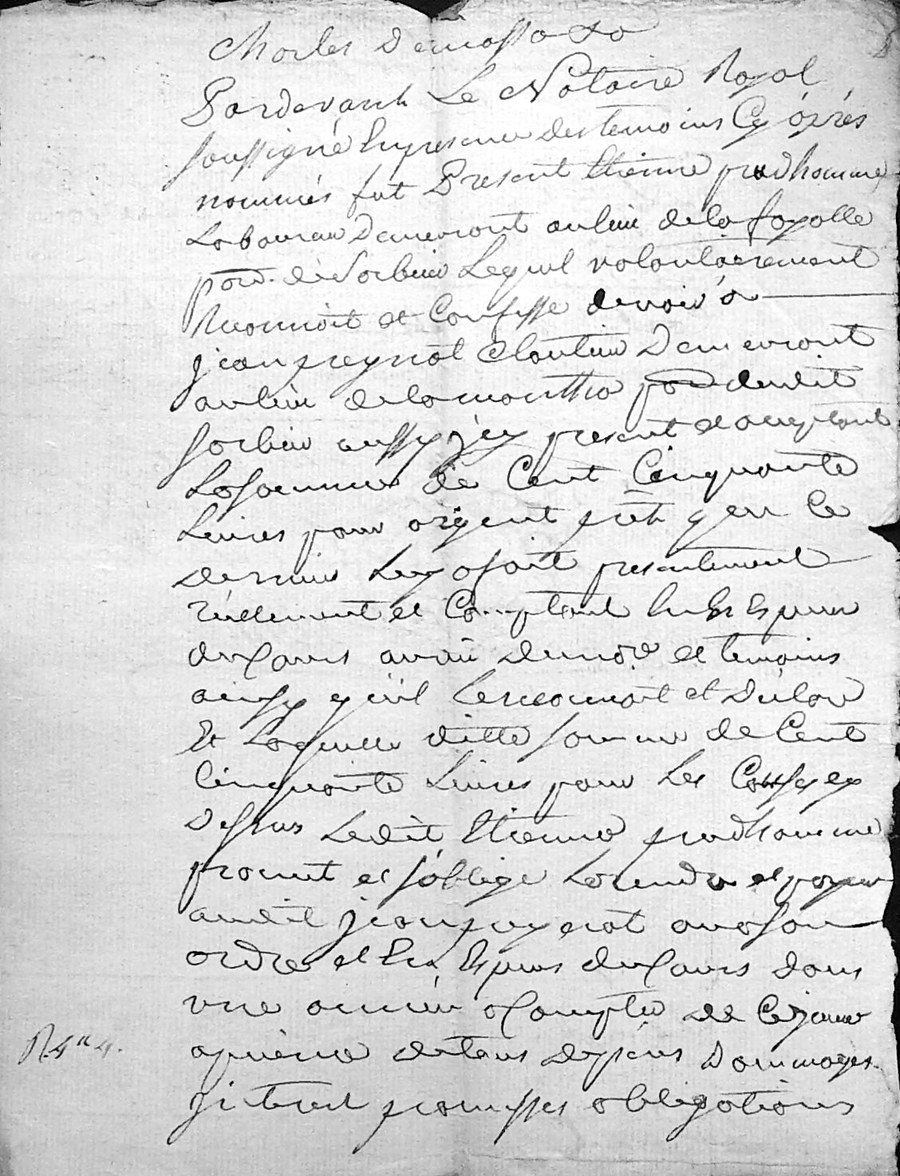 Pardevant Le Notaire Royal
soussigné En presence des temoins Cy après
nommés fut Present Etienne prudhomme
Laboureur Demeurant au lieu de la fayolle
parr. de Sorbier Lequel volontairement
Reconnoit et Confesse devoir a
jean peyrot Cloutier Demeurant
au lieu de la monttha parr. dudit
sorbier aussy jcy present et acceptant
La somme de Cent Cinquante
Livres pour argent prêt que Ce
dernier Luy a fait presentement
réellement et Comptant En Espèces
du Cours avant Du not. et temoins
ainsy qu'il Le reconnoit et Déclare
Et Laquelle ditte somme de Cent
Cinquante Livres pour Les Causes
Dessus Ledit Etienne prudhomme
promet et s'oblige La rendre et payer
audit jean peyrot ou a son
ordre et En Espèces du Cours dans
une année a Compter de Ce jour
a peine de tous depens Dommages
jnterest promesses obligations
R 4" 4.